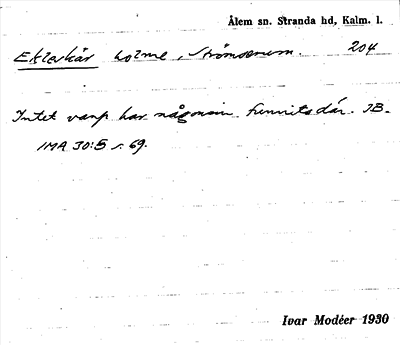 Ålem sn. Stranda hd, Kalm. l.
Ekleskär holme, Strömserum. 204
Intet varp har någonsin funnits där. IB.
IMA 30:5 s. 69.
Ivar Modéer 1930